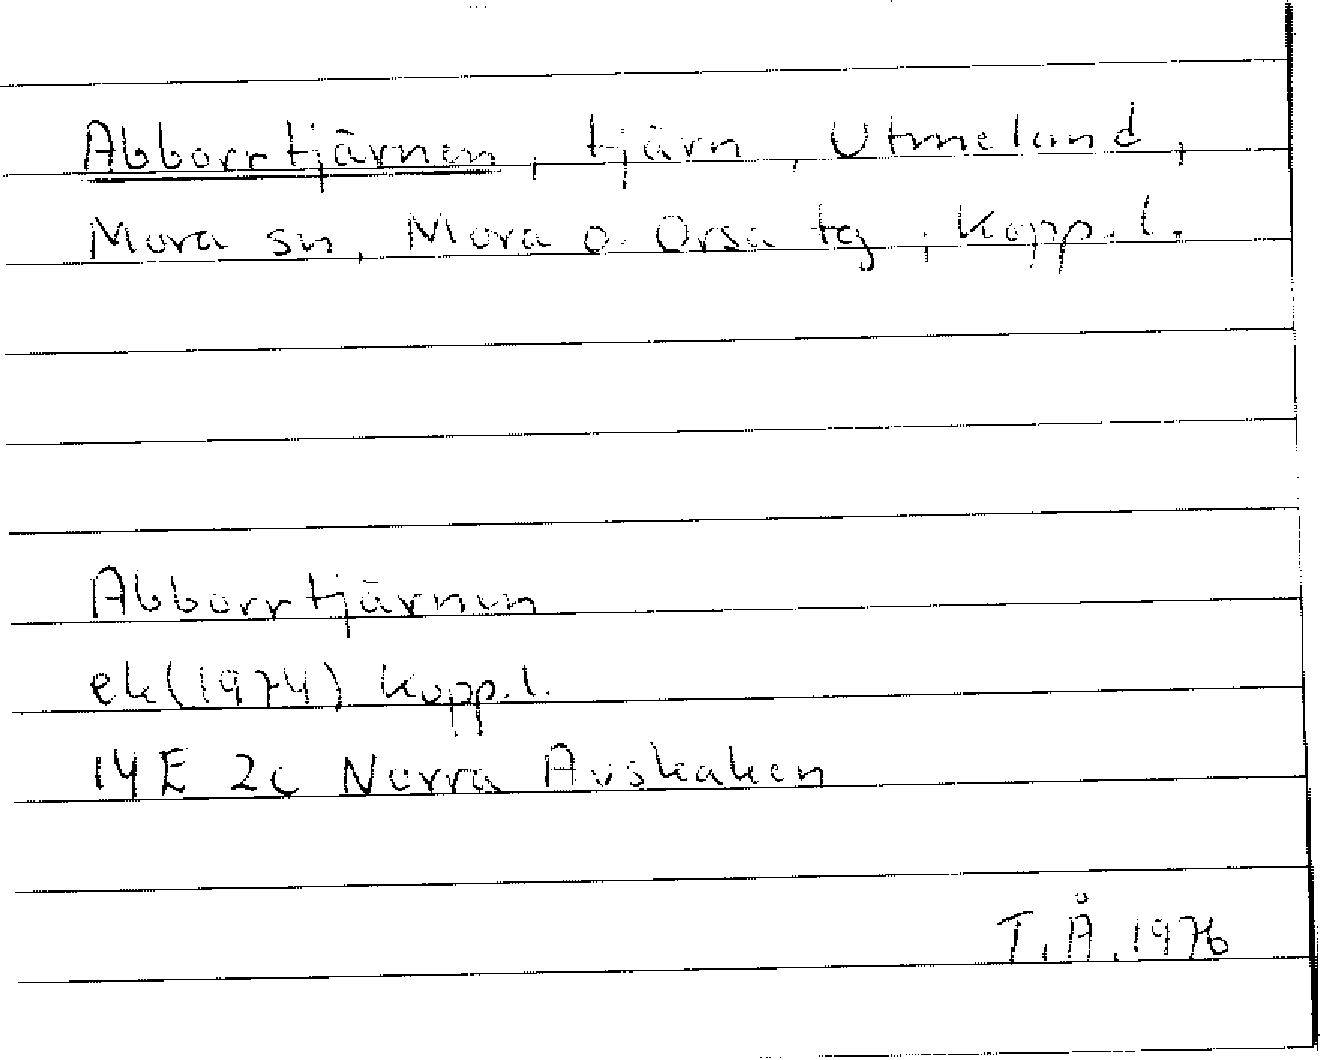 Abborrtjärnen, tjärn, Utmeland,
Mora sn, Mora o. Orsa tg, Kopp. l.
Abborrtjärnen
ek (1974) Kopp. l.
14E 2c Norra Avskaken
T.Å. 1976